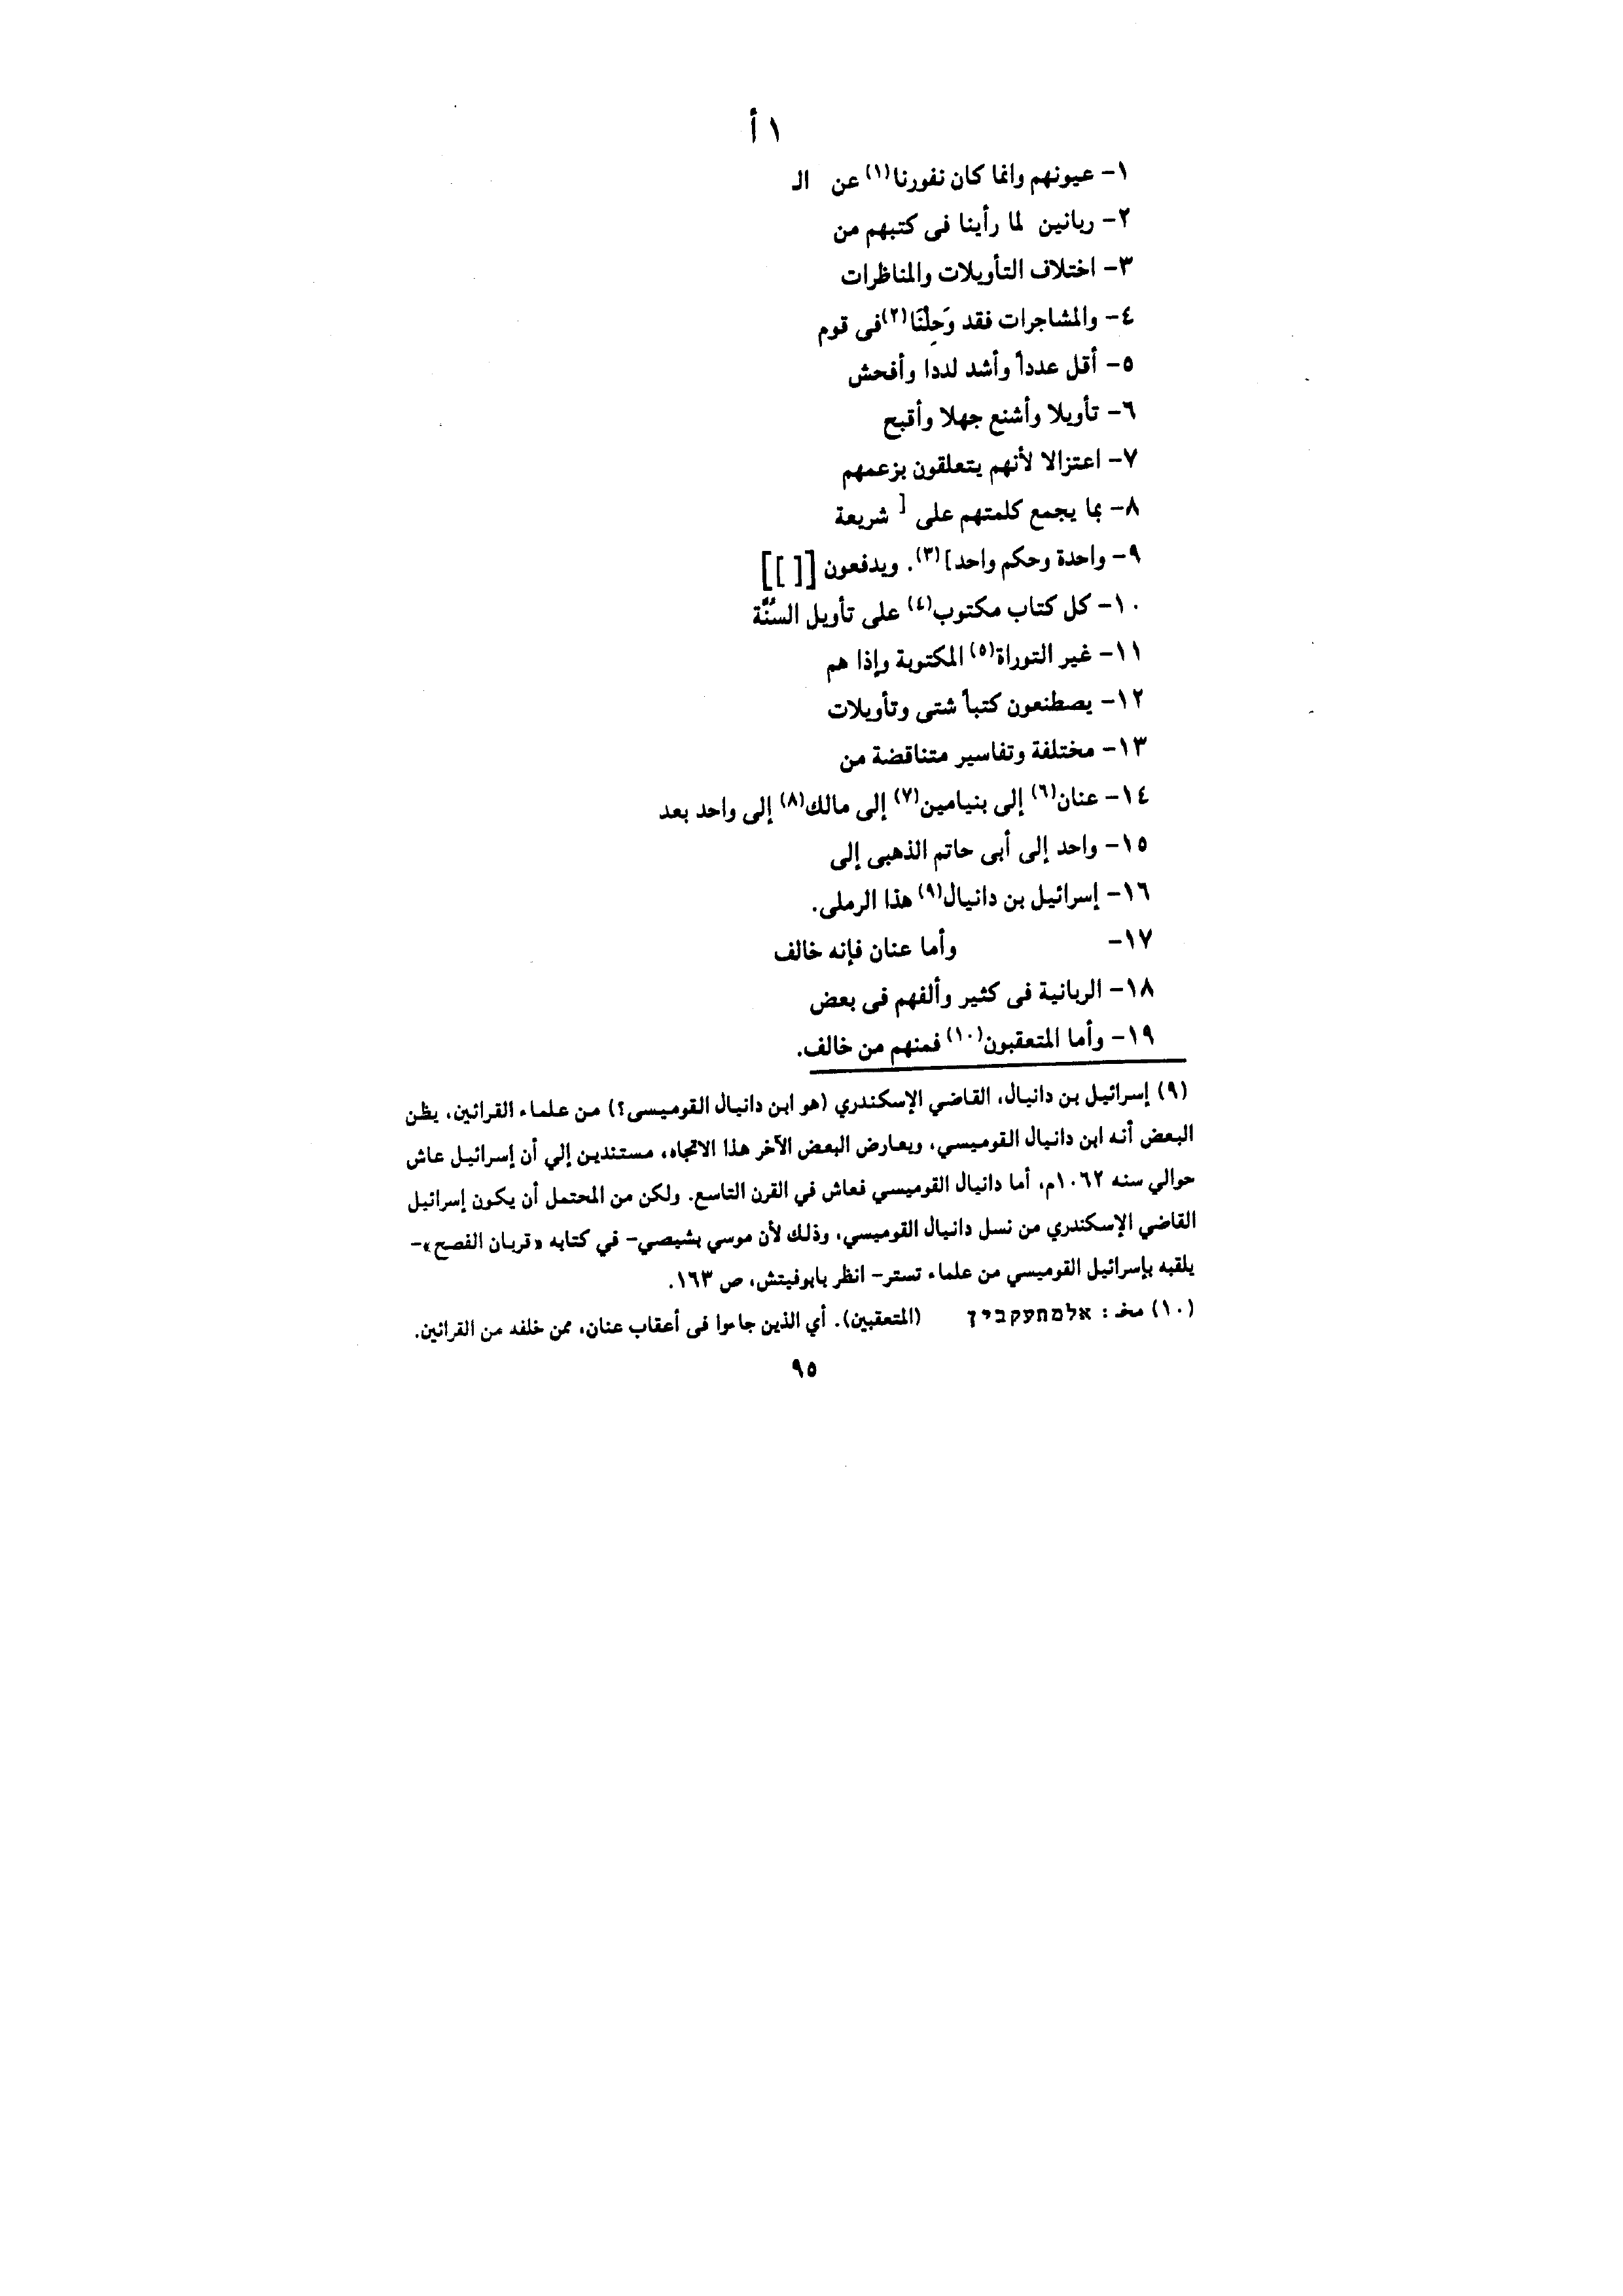 ١ أ
١- عيونهم وانما كان نفورنا(١) عن الـ
٢- ربانين لما رأينا فى كتبهم من
٣- اختلاف التأويلات والمناظرات
٤- والمشاجرات فقد وَحِلْنَا(٢) فى قوم
٥- أقل عدداً وأشد لددا وأفحش
٦- تأويلا وأشنع جهلا وأقبح
٧- اعتزالا لأنهم يتعلقون بزعمهم
٨- بما يجمع كلمتهم على [ شريعة
٩- واحدة وحكم واحد](٣). ويدفعون [[ ]]
١٠- كل كتاب مكتوب(٤) على تأويل السُنَّة
١١- غير التوراة(٥) المكتوبة وإذا هم
١٢- يصطنعون كتباً شتى وتأويلات
١٣- مختلفة وتفاسير متناقضة من
١٤- عنان(٦) إلى بنيامين(٧) إلى مالك(٨) إلى واحد بعد
١٥- واحد إلى أبى حاتم الذهبى إلى
١٦- إسرائيل بن دانيال(٩) هذا الرملى.
١٧- وأما عنان فإنه خالف
١٨- الربانية فى كثير وألفهم فى بعض
١٩- وأما المتعقبون(١٠) فمنهم من خالف.
(٩) إسرائيل بن دانيال، القاضي الإسكندري (هو ابن دانيال القوميسى؟) من علماء القرائين، يظن
البعض أنه ابن دانيال القوميسي، ويعارض البعض الآخر هذا الاتجاه، مستندين إلي أن إسرائيل عاش
حوالي سنه ١٠٦٢م، أما دانيال القوميسي فعاش في القرن التاسع. ولكن من المحتمل أن يكون إسرائيل
القاضي الإسكندري من نسل دانيال القوميسي، وذلك لأن موسي بشيصي- في كتابه «قربان الفصح»-
يلقبه بإسرائيل القوميسي من علماء تستر- انظر بابوفيتش، ص ١٦٣.
(١٠) مخـ : אלמתעקבין (المتعقبين). أي الذين جاءوا فى أعقاب عنان، ممن خلفه من القرائين.
٩٥